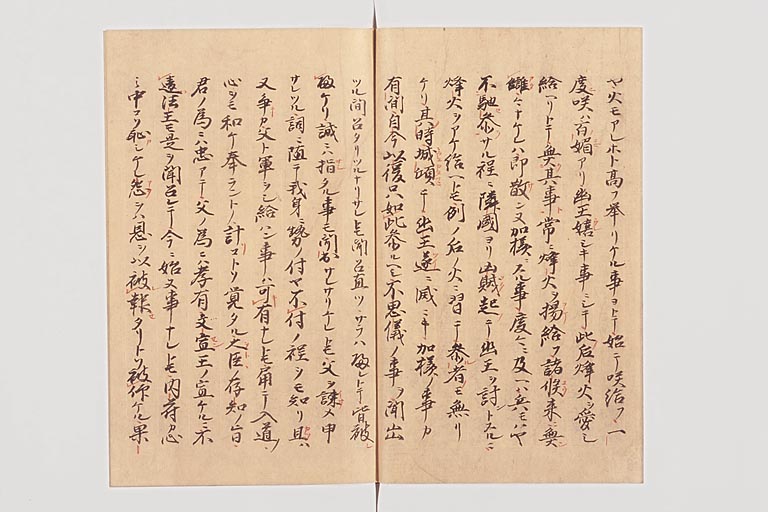 ヤ火モアレホト高フ挙リケル事ヨトテ始テ咲給フ一
度咲ハ百媚アリ幽王嬉シキ事ニシテ此后烽火ヲ愛シ
給ヘリトテ無其事常ニ烽火ヲ揚給フ諸候来ニ無
讎々ナケレハ即散シ又加様ニスル事度々ニ及ハ兵モハヤ
不馳参サル程ニ隣國ヨリ凶賊起テ幽王ヲ討トスルニ
烽火ヲアケ給ヘトモ例ノ后ノ火ニ習テ参者モ無リ
ケリ其時城傾テ幽王遂ニ滅ニキ加様ノ事カ
有間自今以後只如此参ルヘシ不思儀ノ事ヲ聞出
ツル間召タリツルナリサレトモ聞召直ツ サフハ トテ皆被
ケリ誠ニハ指タル事モ聞 サレサリケレトモ父ヲ諫メ申
サレツル詞ニ随テ我身ニ勢ノ付ヤ不付ノ程ヲモ知リ且ハ
又争カ父ト軍ヲシ給ハン事ハ可有ナレトモ角テ入道ノ
心ヲモ和ケ奉ラントノ計コトト覚タル之臣存知ノ旨
君ノ為ニハ忠アテ父ノ為ニハ孝有文宣王ノ宣ケルニ不
違法王モ是ヲ聞召レテ今ニ始ヌ事ナレトモ内府カ心
ミ中コソ恥シケレ怨ヲハ恩ヲ以被報タリトソ被仰ケル果